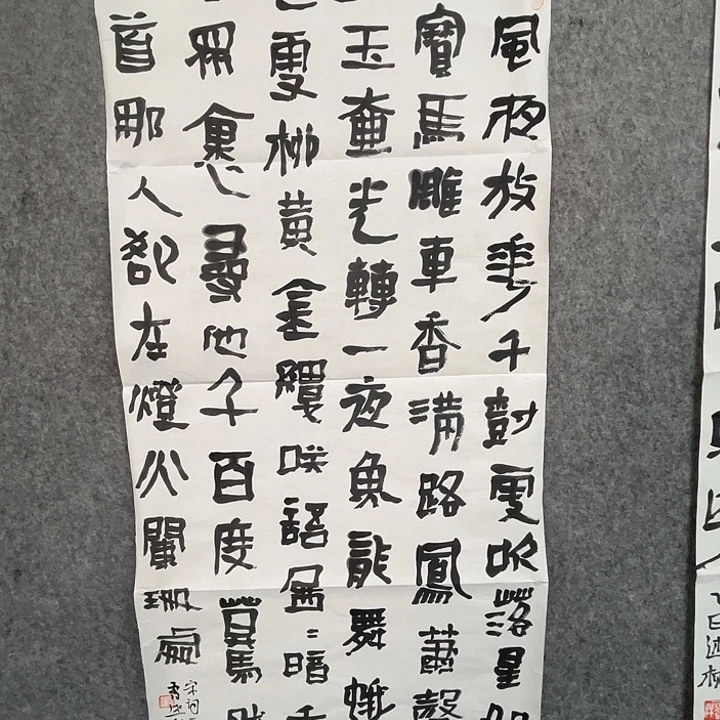 風夜放華千尌更吹落星如
寶馬雕車香滿路鳳蕭聲
玉壺光轉一夜魚龍舞蛾
雪柳黃金縷咲語盈〻暗香
眾裏尋他千百度驀然
首那人卻在燈火闌珊處
宋詞